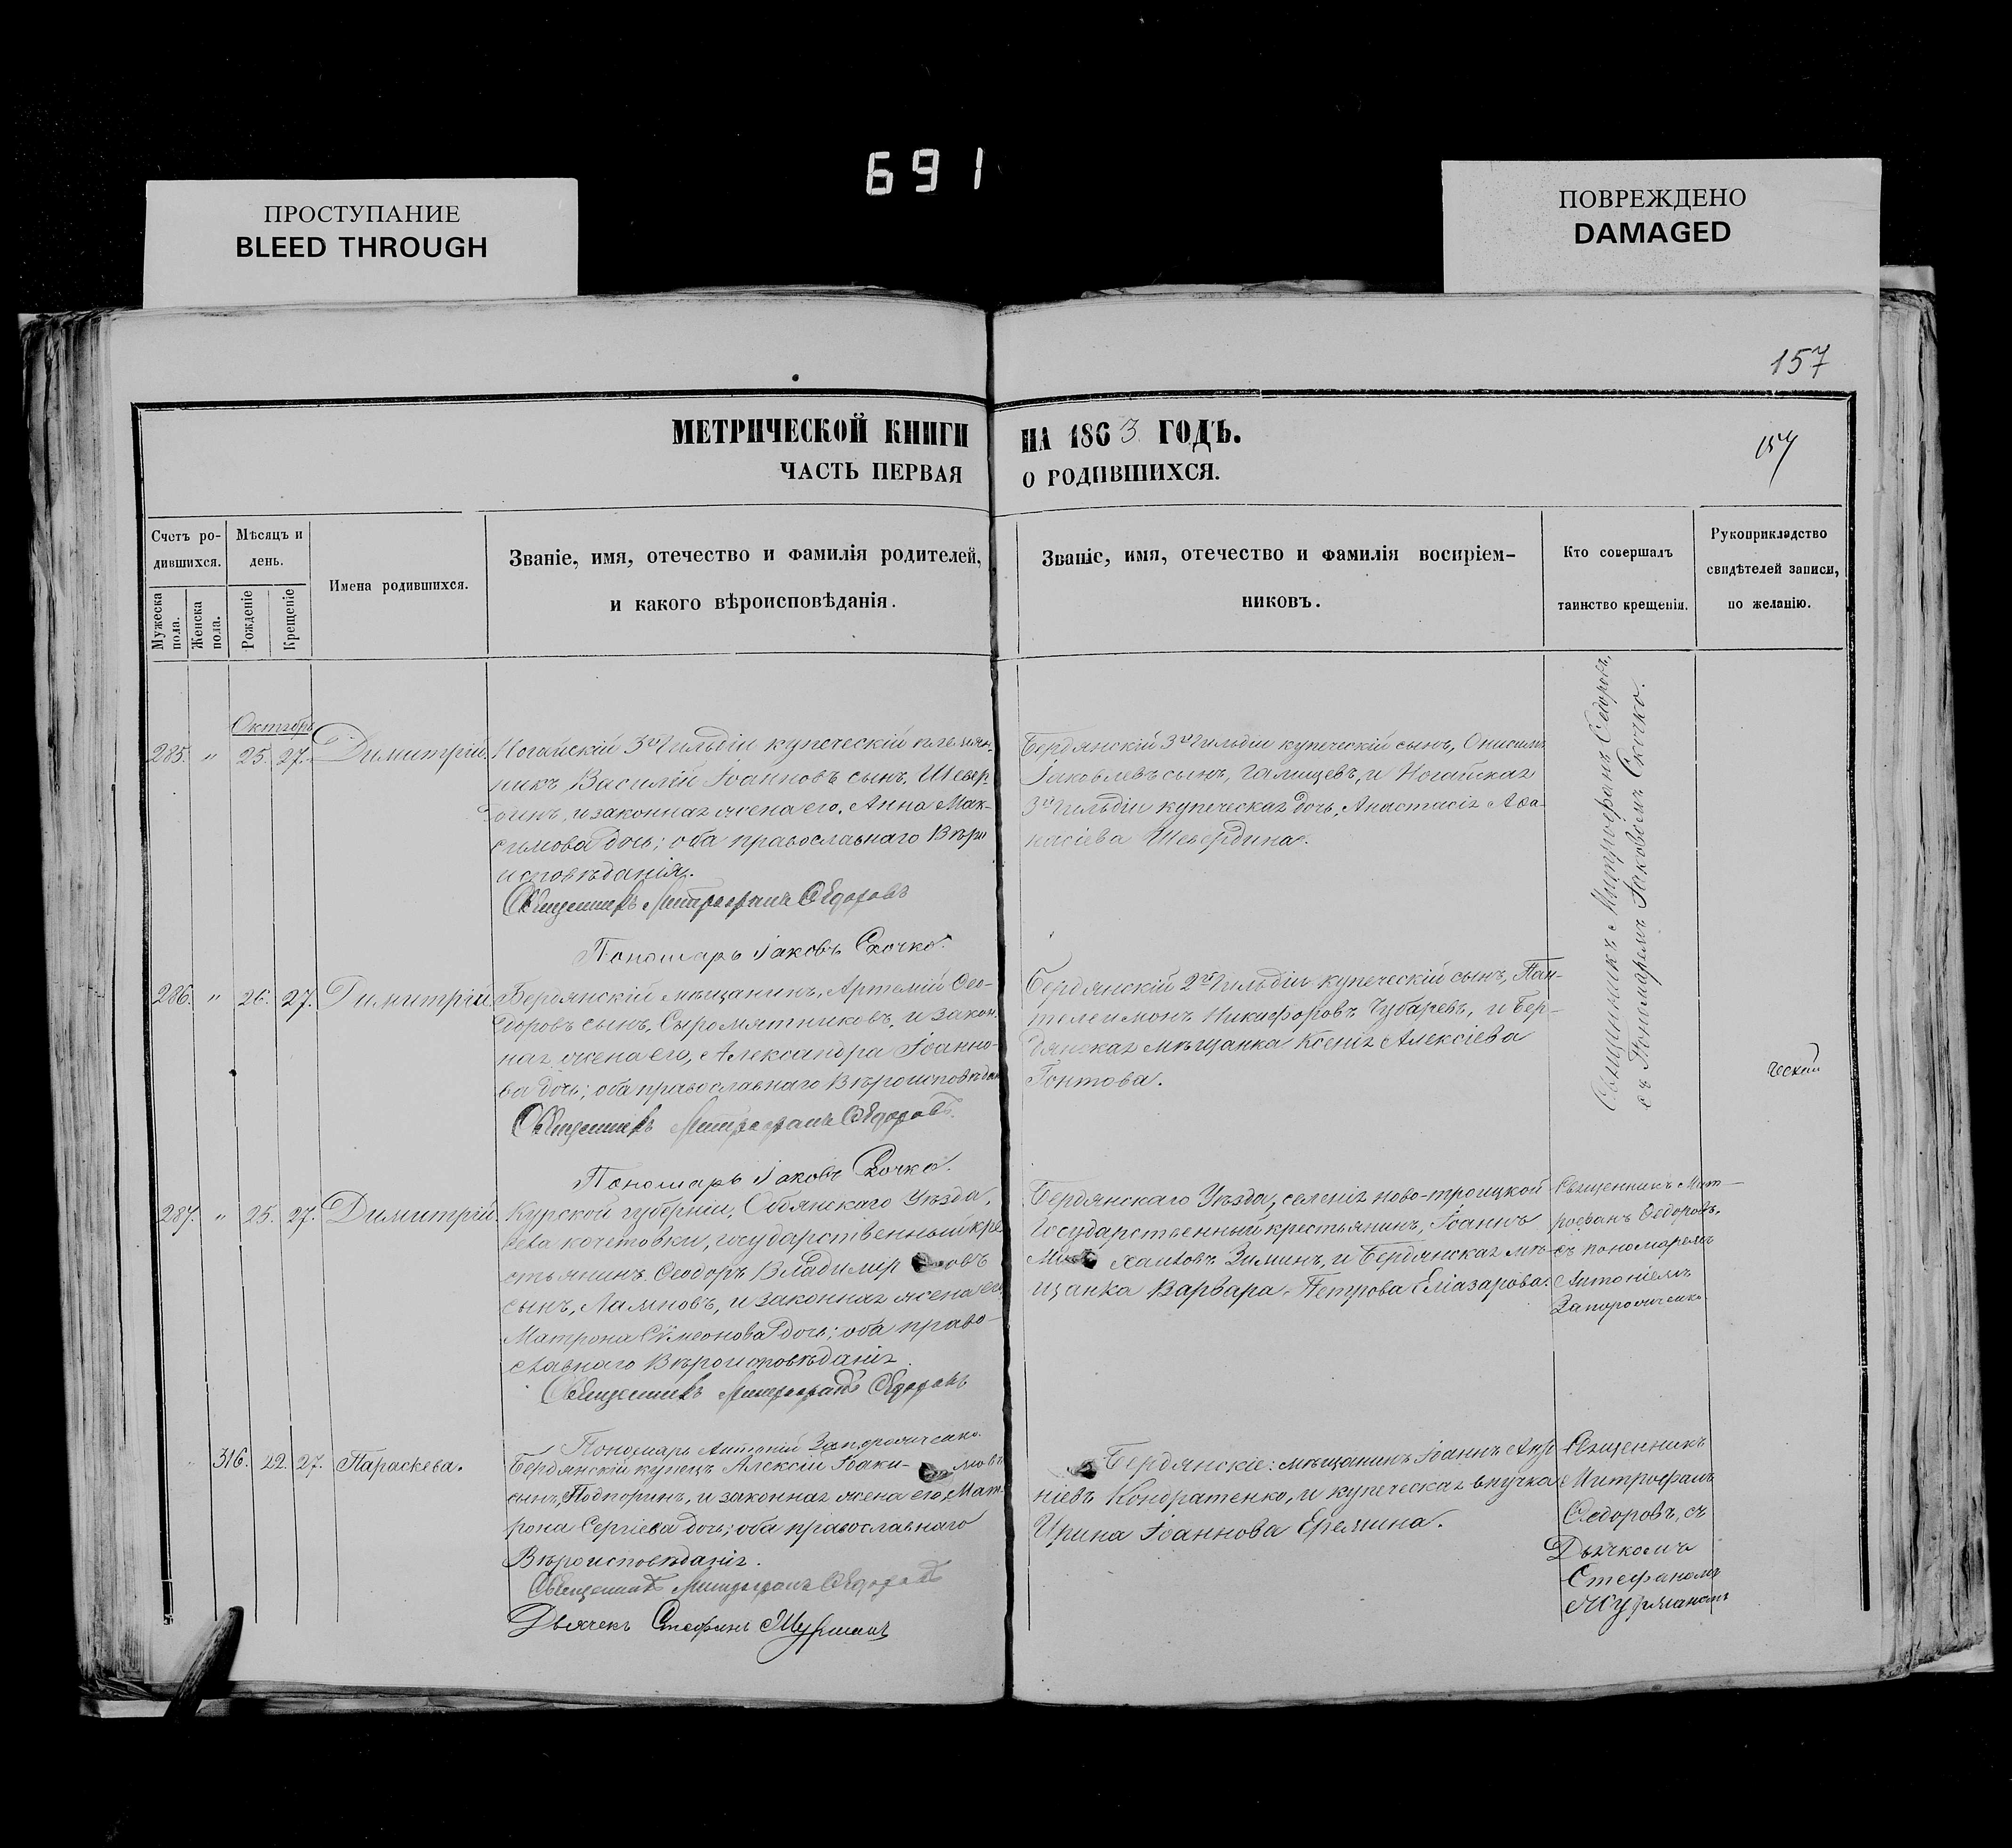 691
ПРОСТУПАНИЕ
BLEED THROUGH
ПОВРЕЖДЕНО
DAMAGED
157
МЕТРИЧЕСКОЙ КНИГИ НА 1863 ГОДЪ.
157
ЧАСТЬ ПЕРВАЯ О РОДИВШИХСЯ.
Счетъ ро-
дившихся.
Мужеска пола.
Женска пола.
Мѣсяцъ и
день.
Рожденіе
Крещеніе
Имена родившихся.
Званіе, имя, отечество и фамилія родителей,
и какого вѣроисповѣданія.
Званіе, имя, отечество и фамилія воспріем-
никовъ.
Кто совершалъ
таинство крещенія.
Рукоприкладство
свидѣтелей записи,
по желанію.
Октябрь
285. " 25. 27. Димитрій.
Ногайскій 3й Гильдіи купеческій племян-
никъ Василій Іоанновъ сынъ, Шевер-
динъ, и законная жена его, Анна Мак-
симова дочь; оба православнаго Вѣро
исповѣданія.
Священникъ Митрофанъ Ѳедоровъ
Пономарь Іаковъ Скочко.
Бердянскій 3й Гильдіи купеческій сынъ, Онисимъ
Іаковлевъ сынъ, Галищевъ, и Ногайская
3й Гильдіи купеческая дочь, Анастасія Аѳа-
насіева Шевердина.
Священникъ Митрофанъ Ѳедоровъ,
съ Пономаремъ Іаковомъ Скочко.
286. " 26. 27. Димитрій
Бердянскій мѣщанинъ, Артемій Ѳео-
доровъ сынъ, Сыромятниковъ, и закон-
ная жена его, Александра Іоанно-
ва дочь; оба православнаго Вѣроисповѣдан
Священникъ Митрофанъ Ѳедоровъ.
Пономарь Іаковъ Скочко.
Бердянскій 2й Гильдіи купеческій сынъ, Пан-
телеимонъ Никифоровъ Чубаревъ, и Бер-
дянская мѣщанка Ксенія Алексіева
Гонтова.
ческій
287. " 25. 27. Димитрій.
Курской губерніи, Обоянскаго Уѣзда,
села кочетовки, государственный кре
стьянинъ Ѳеодоръ Владимір овъ
сынъ, Ламновъ, и законная жена его
Матрона Сѵмеонова дочь; оба право-
славнаго Вѣроисповѣданія.
Священникъ Митрофанъ Ѳедоровъ
Пономарь Антоній Запорожченко.
Бердянскаго Уѣзда, селенія ново-троицкой
Государственный крестьянинъ, Іоаннъ
Ми хаиловъ Зиминъ, и Бердянская мѣ-
щанка Варвара Петрова Еліазарова.
Священникъ Мит-
рофанъ Ѳедоровъ,
съ пономаремъ
Антоніемъ
Запорожченко
316. 22. 27. Параскева.
Бердянскій купецъ Алексій Іоаки- мовъ
сынъ, Подпоринъ, и законная жена его, Мат-
рона Сергіева дочь; оба православнаго
Вѣроисповѣданія.
Священникъ Митрофанъ Ѳедоровъ
Дьячекъ Стефанъ Журманъ
Бердянскіе: мѣщанинъ Іоаннъ
ніевъ Кондратенко, и купеческая внучка
Ирина Іоаннова Еремина.
Священникъ
Митрофанъ
Ѳедоровъ, съ
Дьячкомъ
Стефаномъ
Журманомъ